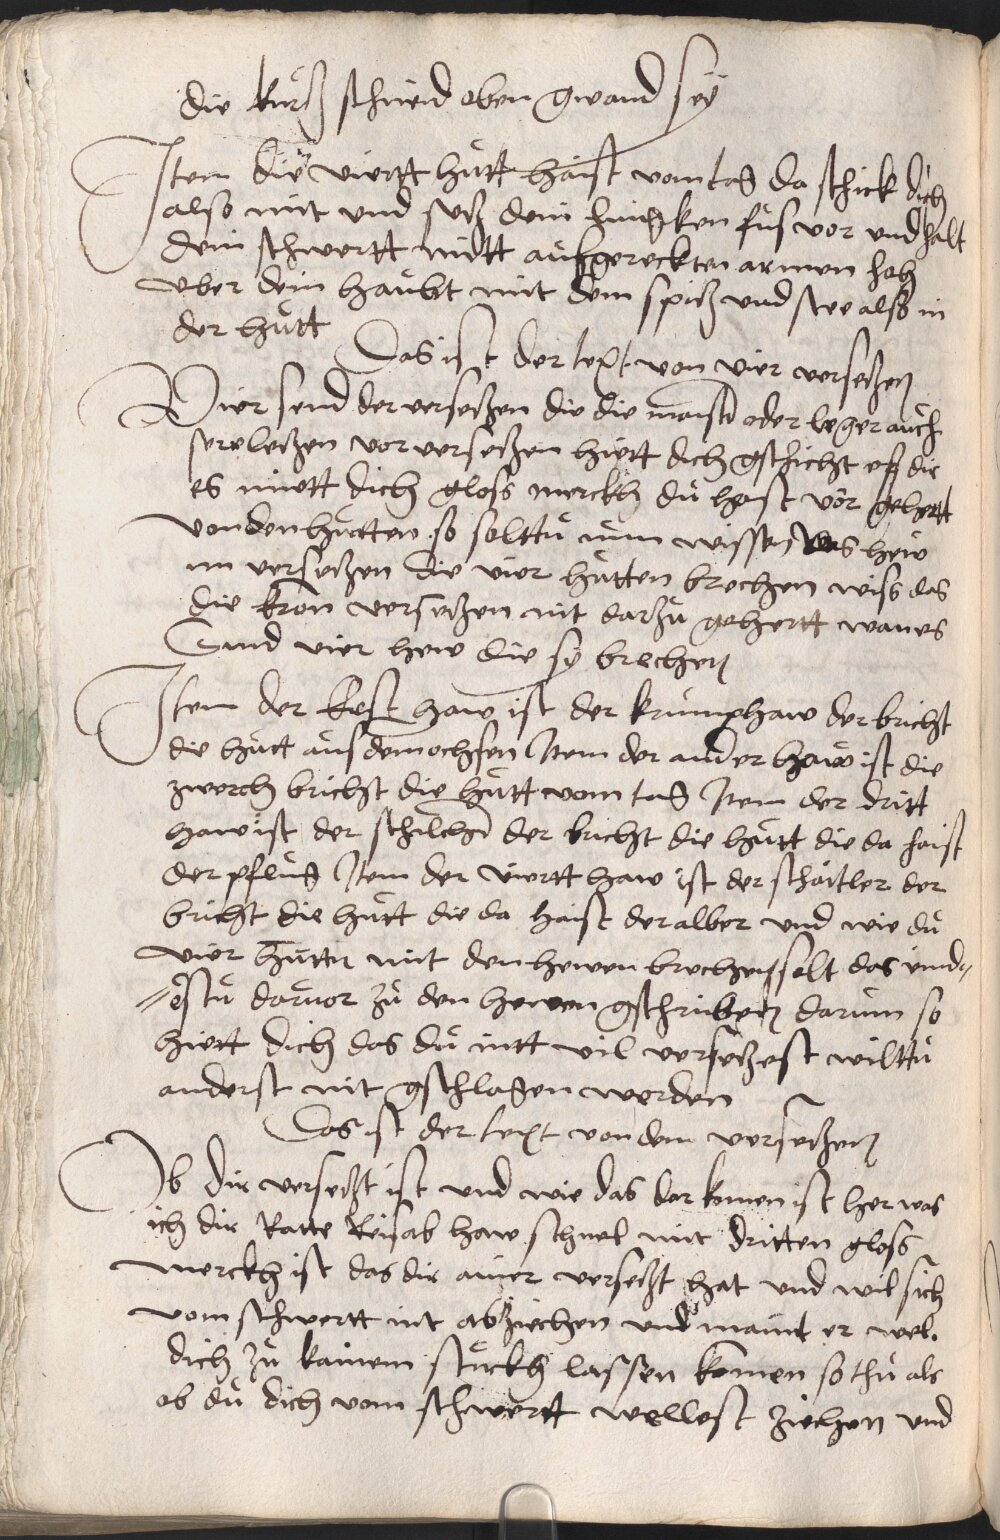 die kurtz schneid oben gwand sey
Item die viertt hutt haist vom tag da schick dich
also mit und setz dein linckken fus vor und halt
dein schwertt mitt aufgereckten armen hoch
vber dein haubt mit dem spitz und stee also in
der hutt
Das ist der text von vier versetzen
Vier send der versetzen die die maist oder leger auch
sere letzen vor versetzen hiett dich gschicht eß dir
es miett dich gloss merckh du hast vor gehertt
von den hutten so solttu nun wissen das hew
im versetzen die vier hutten brechen wiss das
die kron versetzen nit darzu gehertt wan es
Sind vier hew die sy brechen
Item der erst haw ist der krumphaw der bricht
die hutt aus dem ochssen Item der ander haw ist die
zwerch bricht die hutt vom tag Item der dritt
haw ist der schilcher der bricht die hutt die da haist
der pflug Item der viertt haw ist der schaitler der
bricht die hutt die da haist der alber und wie du
vier hutten mit den hewen brechen solt das vind„
„estu daruor zu den hewen gschriben darum so
hiett dich das du nitt vil versetzest wilttu
anderst nit gschlagen werden
Das ist der text von dem versetzen
Ob dir versetzt ist und wie das dar komen ist her was
ich dir ratte reis ab haw schnel mit dritten gloss
merckh ist das dir ainer versetzt hat und wil sich
vom schwertt nit abziechen und maint er wel.
dich zu kainem stuckh lassen komen so thu als
ob du dich vom schwertt wellest ziechen und